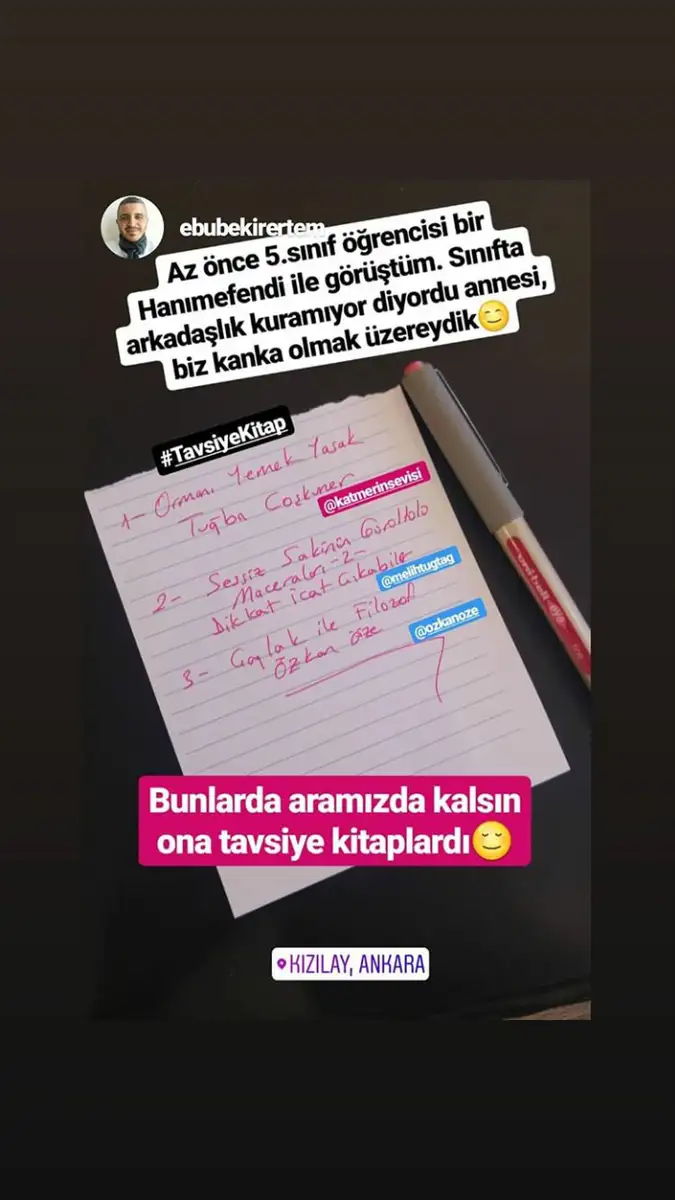 ebubekirertem
Az önce 5.sınıf öğrencisi bir
Hanımefendi ile görüştüm. Sınıfta
arkadaşlık kuramıyor diyordu annesi,
biz kanka olmak üzereydik😊
#TavsiyeKitap
1- Ormanı Yemek Yasak
Tuğba Coşkuner
@katmerinsevisi
2- Sessiz Sakinin Gürültülü
Maceraları -2-
Dikkat icat Çıkabilir
@melihtugtag
3- Çaylak ile Filozof
Özkan öze
@ozkanoze
uni-ball eye
Bunlarda aramızda kalsın
ona tavsiye kitaplardı😌
KIZILAY, ANKARA